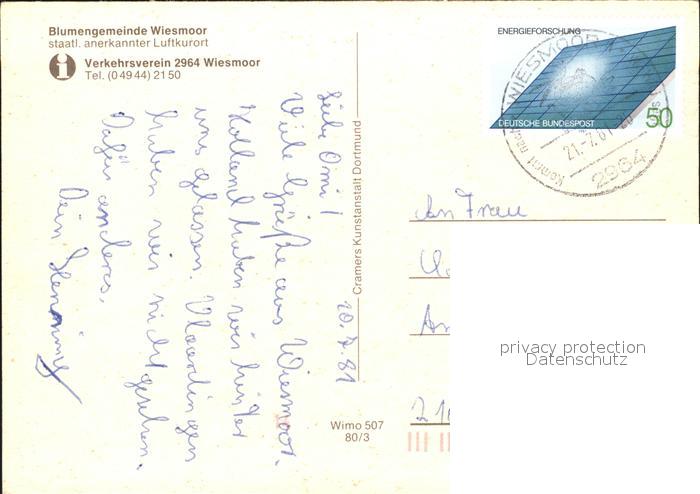 Blumengemeinde Wiesmoor
staatl. anerkannter Luftkurort
i Verkehrsverein 2964 Wiesmoor
Tel. (0 49 44) 21 50
20.7.81
Liebe Omi!
Viele Grüße aus Wiesmoor.
Holland haben wir hinter
uns gelassen. Vlaardingen
haben wir nicht gesehen.
Dafür anderes.
Dein Henning
Cramers Kunstanstalt Dortmund
Wimo 507
80/3
ENERGIEFORSCHUNG
DEUTSCHE BUNDESPOST
50
WIESMOOR
Kommt nach
21.-7.81
2964
An Frau
privacy protection
Datenschutz